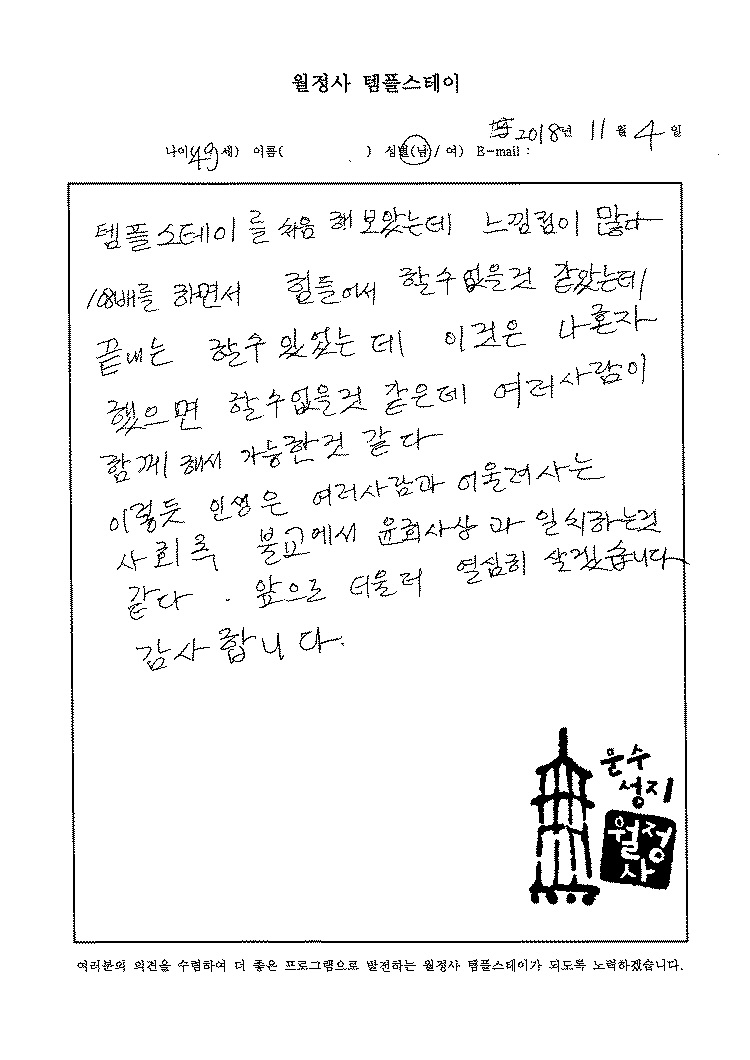 월정사 템플스테이
2018년 11월 4일
나이(49세) 이름( ) 성별(남)/여) E-mail :
템플스테이를 처음 해보았는데 느낌점이 많다
108배를 하면서 힘들어서 할수없을것 같았는데
끝내는 할수 있었는데 이것은 나혼자
했으면 할수없을것 같은데 여러사람이
함께 해서 가능한것 같다
이렇듯 인생은 여러사람과 어울려사는
사회즉 불교에서 윤회사상과 일치하는것
같다. 앞으로 더울러 열심히 살겠습니다
감사합니다.
문수
성지
월정
사
여러분의 의견을 수렴하여 더 좋은 프로그램으로 발전하는 월정사 템플스테이가 되도록 노력하겠습니다.